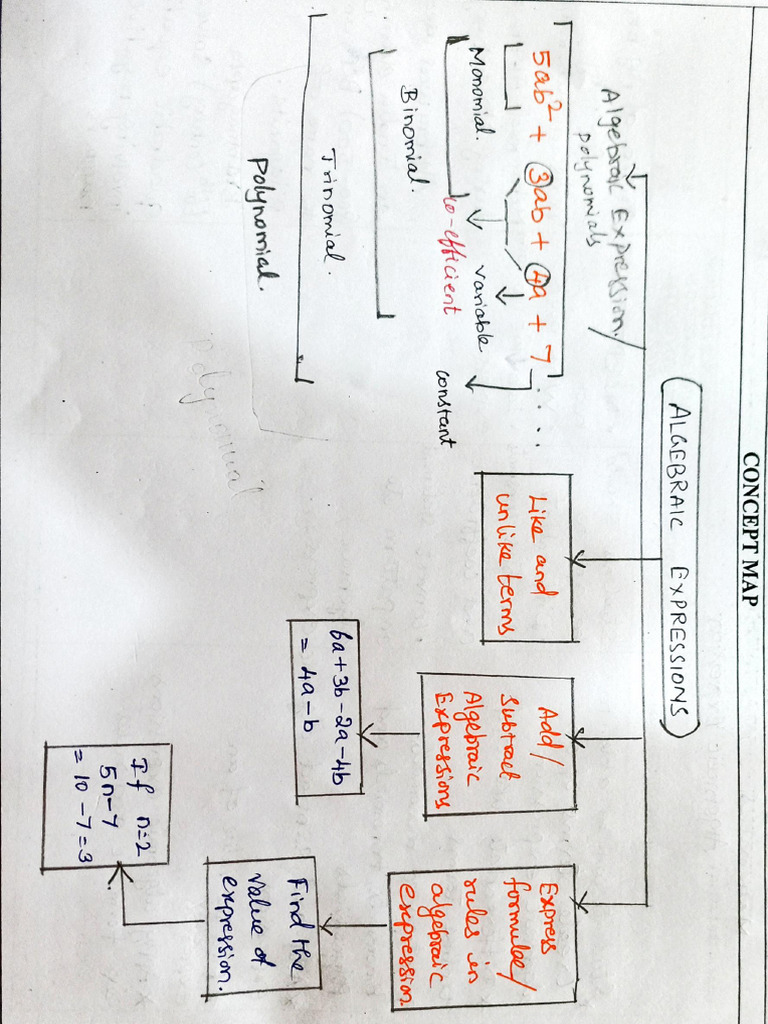 CONCEPT MAP
ALGEBRAIC EXPRESSIONS
Algebraic Expression/
polynomials
5ab² + 3ab + 4a + 7 ....
Monomial.
variable
constant
co-efficient
Binomial.
Trinomial.
Polynomial.
polynomial
Like and
unlike terms
Add/
Subtract
Algebraic
Expressions
6a+3b-2a-4b
= 4a-b
Express
formulae/
rules in
algebraic
expression.
Find the
value of
expression.
If n=2
5n-7
= 10-7=3